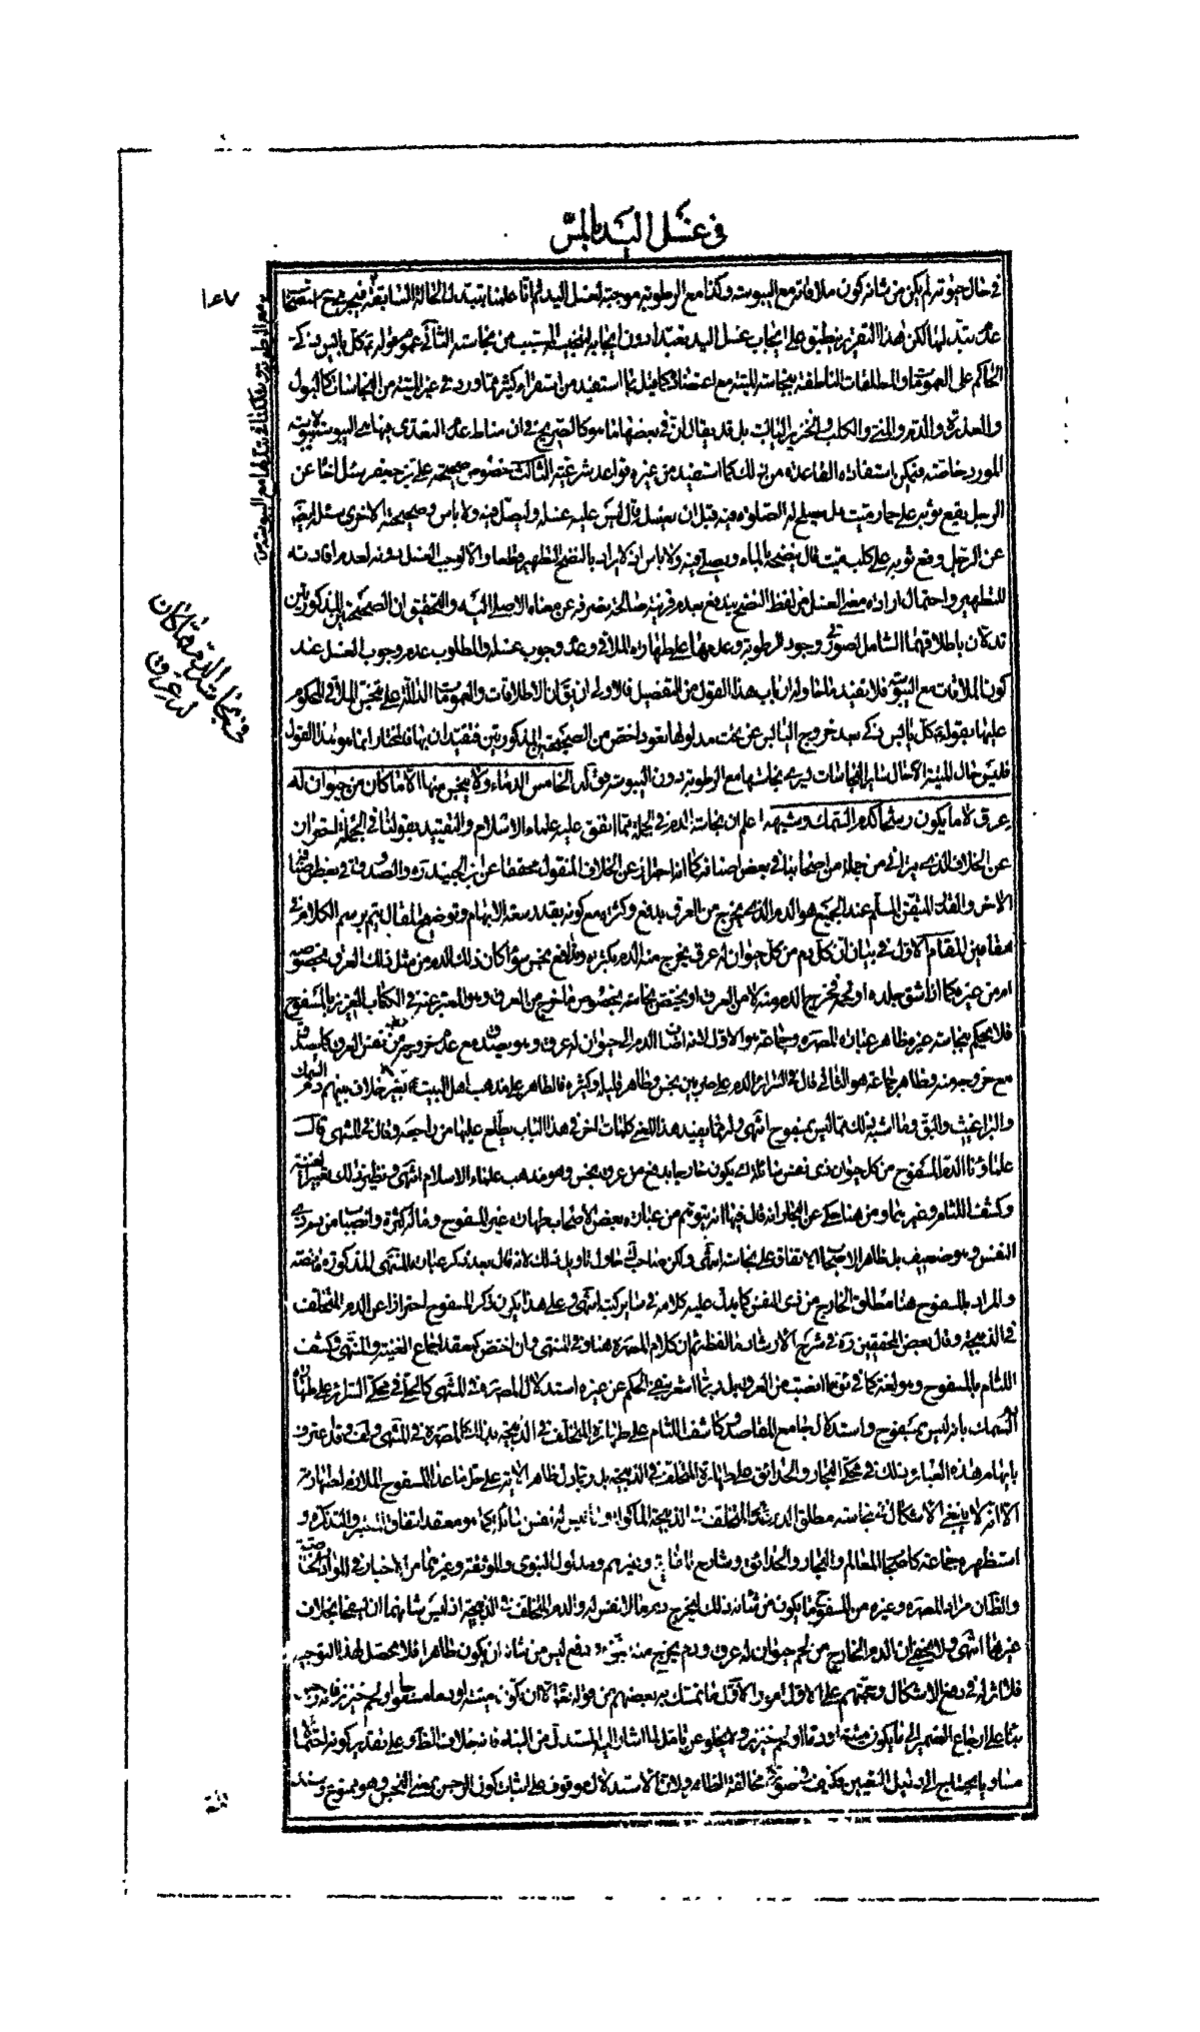 في غسل اليد بالمس
١٤٧
في حال حيوته لم يكن من شانه كون ملاقاته مع اليبوسة وكذا مع الرطوبة موجبة لغسل اليد ثم انا علمنا بتبدل الحالة السابقة
عدم تبدلها لكن هذا التقرير ينطبق على ايجاب غسل اليد تعبدا دون ايجابه للتنجيس المسبب من نجاسته الثاني عموم قوله كل يابس زكي
الحاكم على العمومات والمطلقات الناطقة بنجاسة الميتة مع اعتضاده كما قيل بما استفيد من استقراء كثير مما ورد في غير الميتة من النجاسات كالبول
والعذرة والدم والمني والكلب والخنزير اليابس بل قد يقال ان في بعضها ما هو كالصريح في ان مناط عدم التعدي فيها هي اليبوسة
المورد خاصة فيمكن استفادة القاعدة من ذلك كما استفيد من غيره قواعد شرعية الثالث خصوص صحيحة علي بن جعفر سئل اخاه عن
الرجل يقع ثوبه على حمار ميت هل يصلح له الصلوة فيه قبل ان يغسله قال ليس عليه غسله وليصل فيه ولا باس وصحيحته الاخرى سئله ايضا
عن الرجل وقع ثوبه على كلب ميت قال ينضحه بالماء ويصلي فيه ولا باس اذ لا يراد بالنضح التطهير قطعا والا لوجب الغسل دونه لعدم افادته
للتطهير واحتمال ارادة معنى الغسل من لفظ النضح يدفع بعدم قرينة صالحة تصرفه عن معناه الاصلي اليه والتحقيق ان الصحيحتين المذكورتين
تدلان باطلاقهما الشامل لصورتي وجود الرطوبة وعدمها على طهارة الملاقي وعدم وجوب غسله والمطلوب عدم وجوب الغسل عند
كون الملاقات مع اليبوسة فلا يفيد ما حاوله ارباب هذا القول من التفصيل فالاولى ان يقال ان الاطلاقات والعمومات الدالة على تنجس الملاقي المحكوم
عليها بقوله كل يابس زكي بعد خروج اليابس عن تحت مدلولها تعود اخص من الصحيحتين المذكورتين فتقيدان بها فالمختار انما هو هذا القول
فليس حال الميتة الا حال ساير النجاسات يسري نجاستها مع الرطوبة دون اليبوسة قوله الخامس الدماء ولا ينجس منها الا ما كان من حيوان له
عرق لا ما يكون رشحا كدم السمك وشبهه اعلم ان نجاسة الدم في الجملة مما اتفق عليه علماء الاسلام والتقييد بقولنا في الجملة
عن الخلاف الذي يرائى من جملة من اصحابنا في بعض اصنافه كما انه احتراز عن الخلاف المنقول محققا عن ابن الجنيد ره والصدوق في بعض
الارش والقدر المتيقن المسلم عند الجميع هو الدم الذي يخرج من العرق بدفع وكثرة مع كونه بقدر سعة الابهام وتوضيح المقال يتم برسم الكلام في
مقامين المقام الاول في بيان ان كل دم من كل حيوان له عرق يخرج منه الدم بكثرة ودفع نجس سواء كان ذلك الدم من مثل ذلك العرق بخصوصه
ام من غيره كما اذا شق جلده او لحمه فخرج الدم منه لا من العرق او يختص نجاسته بخصوص ما خرج من العرق وهو المعبر عنه في الكتاب العزيز بالمسفوح
فلا يحكم بنجاسة غيره ظاهر عبارة المصره وجماعة هو الاول لانه اضاف الدم الى حيوان له عرق وهو يصدق مع عدم خروجه من نفس العرق كما يصدق
مع خروجه منه وظاهر جماعة هو الثاني قال في السرائر الدم على ضربين نجس وطاهر قليله وكثيره فالطاهر على مذهب اهل البيت بغير خلاف بينهم دم السمك
والبراغيث والبق وما اشبه ذلك مما ليس بمسفوح انتهى ولربما يفيد هذا المعنى كلمات اخر في هذا الباب يطلع عليها من راجعه وقال في المنتهى قال
علماؤنا الدم المسفوح من كل حيوان ذي نفس سائلة اي يكون خارجا بدفع من عرق نجس وهو مذهب علماء الاسلام انتهى ونظير ذلك
وكشف اللثام وغيرهما ومن هنا حكي عن البحار انه قال فيها انه يتوهم من عبارة بعض الاصحاب طهارة غير المسفوح وما له كثرة وانصباب من دم ذي
النفس وهو ضعيف بل ظاهر الاصحاب الاتفاق على نجاسته انتهى ولكن صاحب حاول تاويل ذلك لانه قال بعد ذكر عبارة المنتهى المذكورة ما نصه
والمراد بالمسفوح هنا مطلق الخارج من ذي النفس كما يدل عليه كلامه في ساير كتبه انتهى وعلى هذا يكون ذكر المسفوح احترازا عن الدم المتخلف
في الذبيحة وقال بعض المحققين ره في شرح الارشاد ما لفظه ثم ان كلام المصره هنا وفي المنتهى وان اختص كمعقد اجماع الغنية والمنتهى وكشف
اللثام بالمسفوح وهو لغة كما في ما انصب من العرق بل ربما اشعر بنفي الحكم عن غيره استدلال المصره في المنتهى كالحلي في محكي السرائر على طهارة
السمك بانه ليس بمسفوح واستدلال جامع المقاصد وكاشف اللثام على طهارة المتخلف في الذبيحة بذلك كالمصره في المنتهى
بايهام هذه العبائر ذلك في محكي البحار والحدائق على طهارة المتخلف في الذبيحة بل وتبادل ظاهر الاية على حل ما عدا المسفوح الملازم لطهارته
الا انه لا ينبغي الاشكال في نجاسة مطلق الدم سوى المتخلف في الذبيحة الماكول وما ليس له نفس سائلة كما هو معقد اتفاق المعتبر والتذكرة و
استظهره جماعة كصاحب المعالم والبحار والحدائق وشارح وغيرهم ومدلول النبوي والموثقة وغيرهما من الاخبار في الموارد الخاصة
والظ ان مراد المصره وغيره من المسفوح ما يكون من شانه ذلك ليخرج دم ما لا نفس له والدم المتخلف في الذبيحة اذ ليس شانهما الانسفاح بخلاف
غيرهما انتهى ولا يخفى ان الدم الخارج من لحم حيوان له عرق ودم يخرج منه بقوة ودفع ليس من شانه ان يكون ظاهرا فلا محصل لهذا التوجيه
فلا اثر له في دفع الاشكال وحجتهم على الاول امور الاول ما تمسك به بعضهم من قوله تعالى الا ان يكون ميتة او دما مسفوحا او لحم خنزير فانه رجس
بناء على ارجاع الضمير الى ما يكون ميتة او دما او لحم خنزير ولا يخلو عن تامل لما اشار اليه المستدل من البناء فانه خلاف الظ وعلى تقدير كونه احتمالا
مساويا يحتاج الى دليل التعيين فكيف في صورة مخالفة الظاهر ولان الاستدلال موقوف على اثبات كون الرجس بمعنى النجس وهو ممنوع وسنده
مع الرطوبة وشككنا في تبدلها مع اليبوسة من
في نجاسة الدم مما كان
له عرق